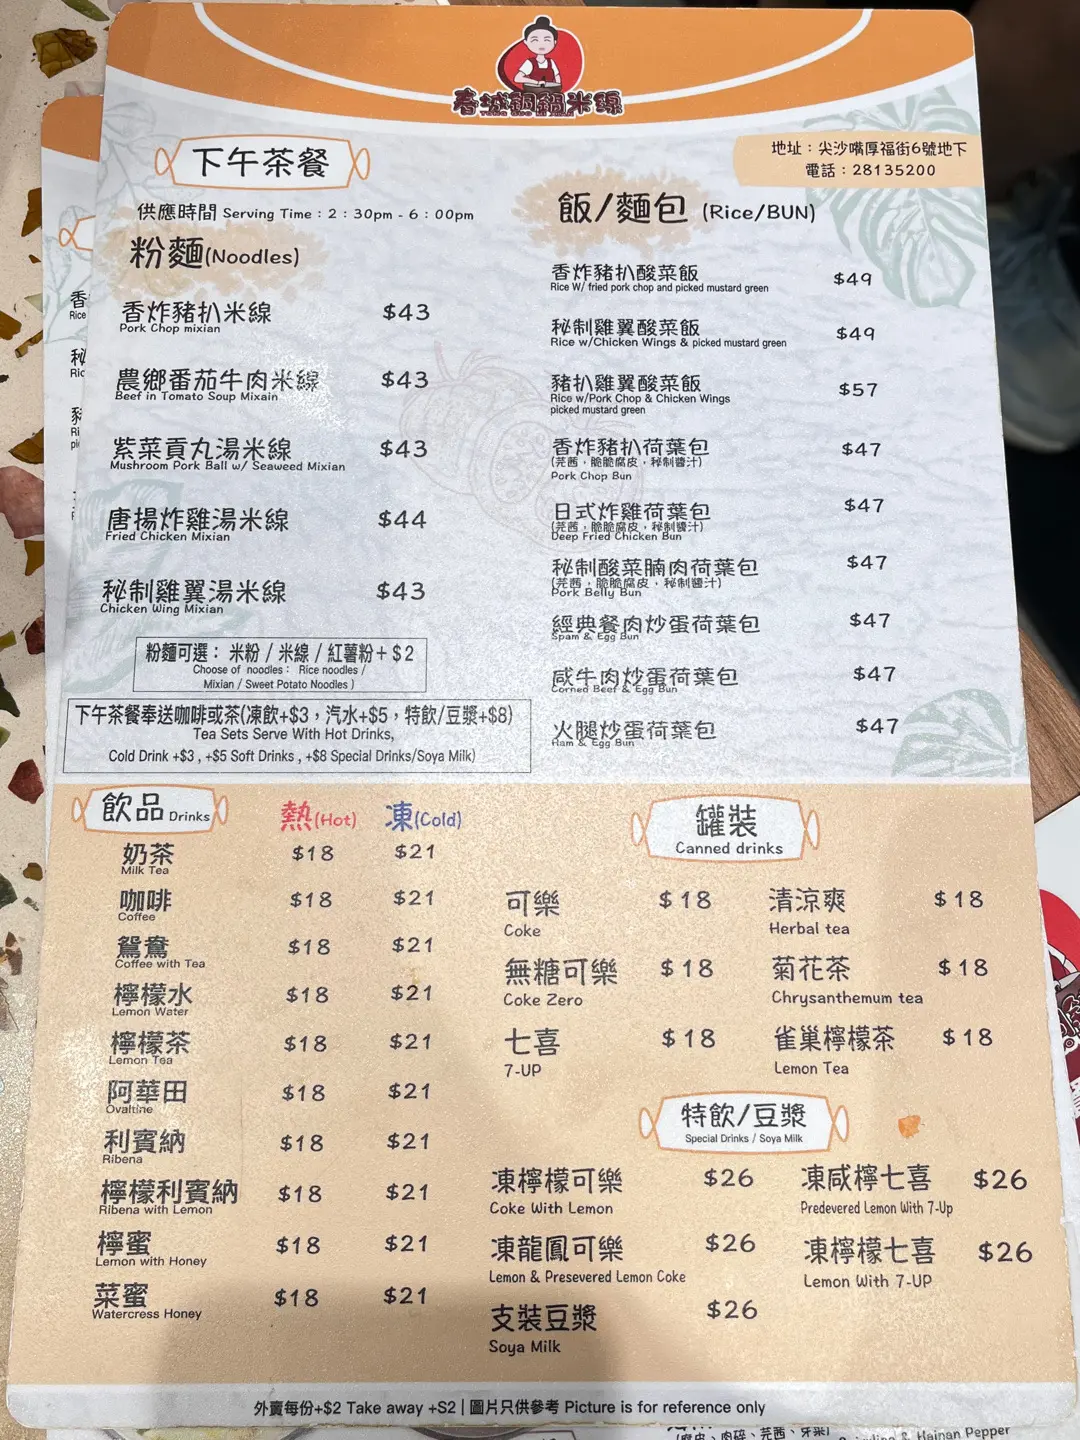 春城銅鍋米線
TONG GUO MI XIAN
地址：尖沙嘴厚福街6號地下
電話：28135200
下午茶餐
供應時間 Serving Time : 2 : 30pm - 6 : 00pm
粉麵(Noodles)
香炸豬扒米線 $43
Pork Chop mixian
農鄉番茄牛肉米線 $43
Beef in Tomato Soup Mixain
紫菜貢丸湯米線 $43
Mushroom Pork Ball w/ Seaweed Mixian
唐揚炸雞湯米線 $44
Fried Chicken Mixian
秘制雞翼湯米線 $43
Chicken Wing Mixian
粉麵可選： 米粉 / 米線 / 紅薯粉+$2
Choose of noodles : Rice noodles /
Mixian / Sweet Potato Noodles )
下午茶餐奉送咖啡或茶(凍飲+$3，汽水+$5，特飲/豆漿+$8)
Tea Sets Serve With Hot Drinks,
Cold Drink +$3 , +$5 Soft Drinks , +$8 Special Drinks/Soya Milk)
飯/麵包 (Rice/BUN)
香炸豬扒酸菜飯 $49
Rice W/ fried pork chop and picked mustard green
秘制雞翼酸菜飯 $49
Rice w/Chicken Wings & picked mustard green
豬扒雞翼酸菜飯 $57
Rice w/Pork Chop & Chicken Wings
picked mustard green
香炸豬扒荷葉包 $47
(芫茜，脆脆腐皮，秘制醬汁)
Pork Chop Bun
日式炸雞荷葉包 $47
(芫茜，脆脆腐皮，秘制醬汁)
Deep Fried Chicken Bun
秘制酸菜腩肉荷葉包 $47
(芫茜，脆脆腐皮，秘制醬汁)
Pork Belly Bun
經典餐肉炒蛋荷葉包 $47
Spam & Egg Bun
咸牛肉炒蛋荷葉包 $47
Corned Beef & Egg Bun
火腿炒蛋荷葉包 $47
Ham & Egg Bun
飲品 Drinks 熱(Hot) 凍(Cold)
奶茶 $18 $21
Milk Tea
咖啡 $18 $21
Coffee
鴛鴦 $18 $21
Coffee with Tea
檸檬水 $18 $21
Lemon Water
檸檬茶 $18 $21
Lemon Tea
阿華田 $18 $21
Ovaltine
利賓納 $18 $21
Ribena
檸檬利賓納 $18 $21
Ribena with Lemon
檸蜜 $18 $21
Lemon with Honey
菜蜜 $18 $21
Watercress Honey
罐裝
Canned drinks
可樂 $18 清涼爽 $18
Coke Herbal tea
無糖可樂 $18 菊花茶 $18
Coke Zero Chrysanthemum tea
七喜 $18 雀巢檸檬茶 $18
7-UP Lemon Tea
特飲/豆漿
Special Drinks / Soya Milk
凍檸檬可樂 $26 凍咸檸七喜 $26
Coke With Lemon Predevered Lemon With 7-Up
凍龍鳳可樂 $26 凍檸檬七喜 $26
Lemon & Presevered Lemon Coke Lemon With 7-UP
支裝豆漿 $26
Soya Milk
外賣每份+$2 Take away +S2 | 圖片只供參考 Picture is for reference only